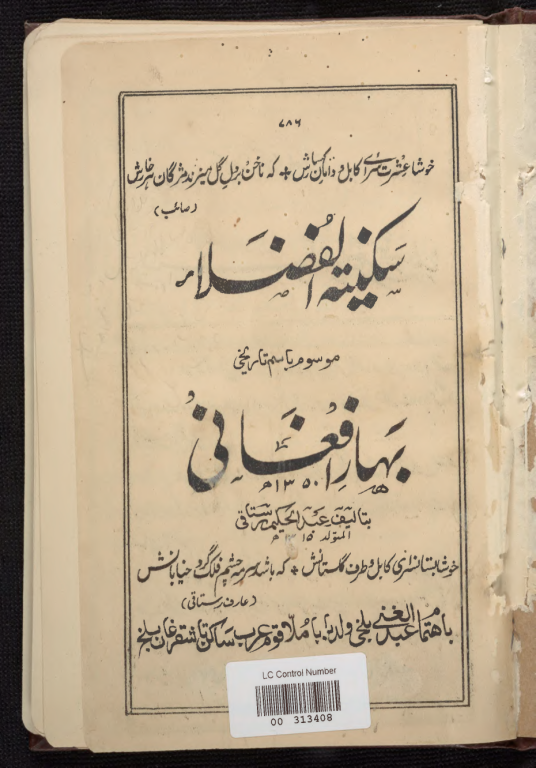 ۷۸۶
خوشا عشرت سرای کابل و دامان کهسارش + که ناخن بر دل گل میزند مژگان هر خارش
(صائب)
سکینته الفضلاء
موسوم باسم تاریخی
بهار افغانی
۱۳۵۰ ه
بتالیف عبدالحکیم رستاقی
المتولد ۱۳۱۵ ه
خوشا بستانسرای کابل و طرف گلستانش + که باشد سرمه چشم فلک گرد خیابانش
(عارف رستاقی)
باهتمام عبدالغنی بلخی ولد بابا ملا قوم عرب ساکن تاشقرغان بلخ
LC Control Number
00 313408